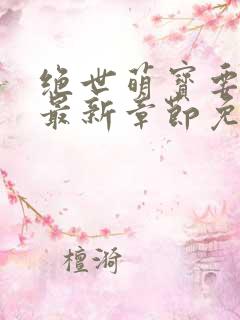 绝世萌宝要
最新章节免
檀漪